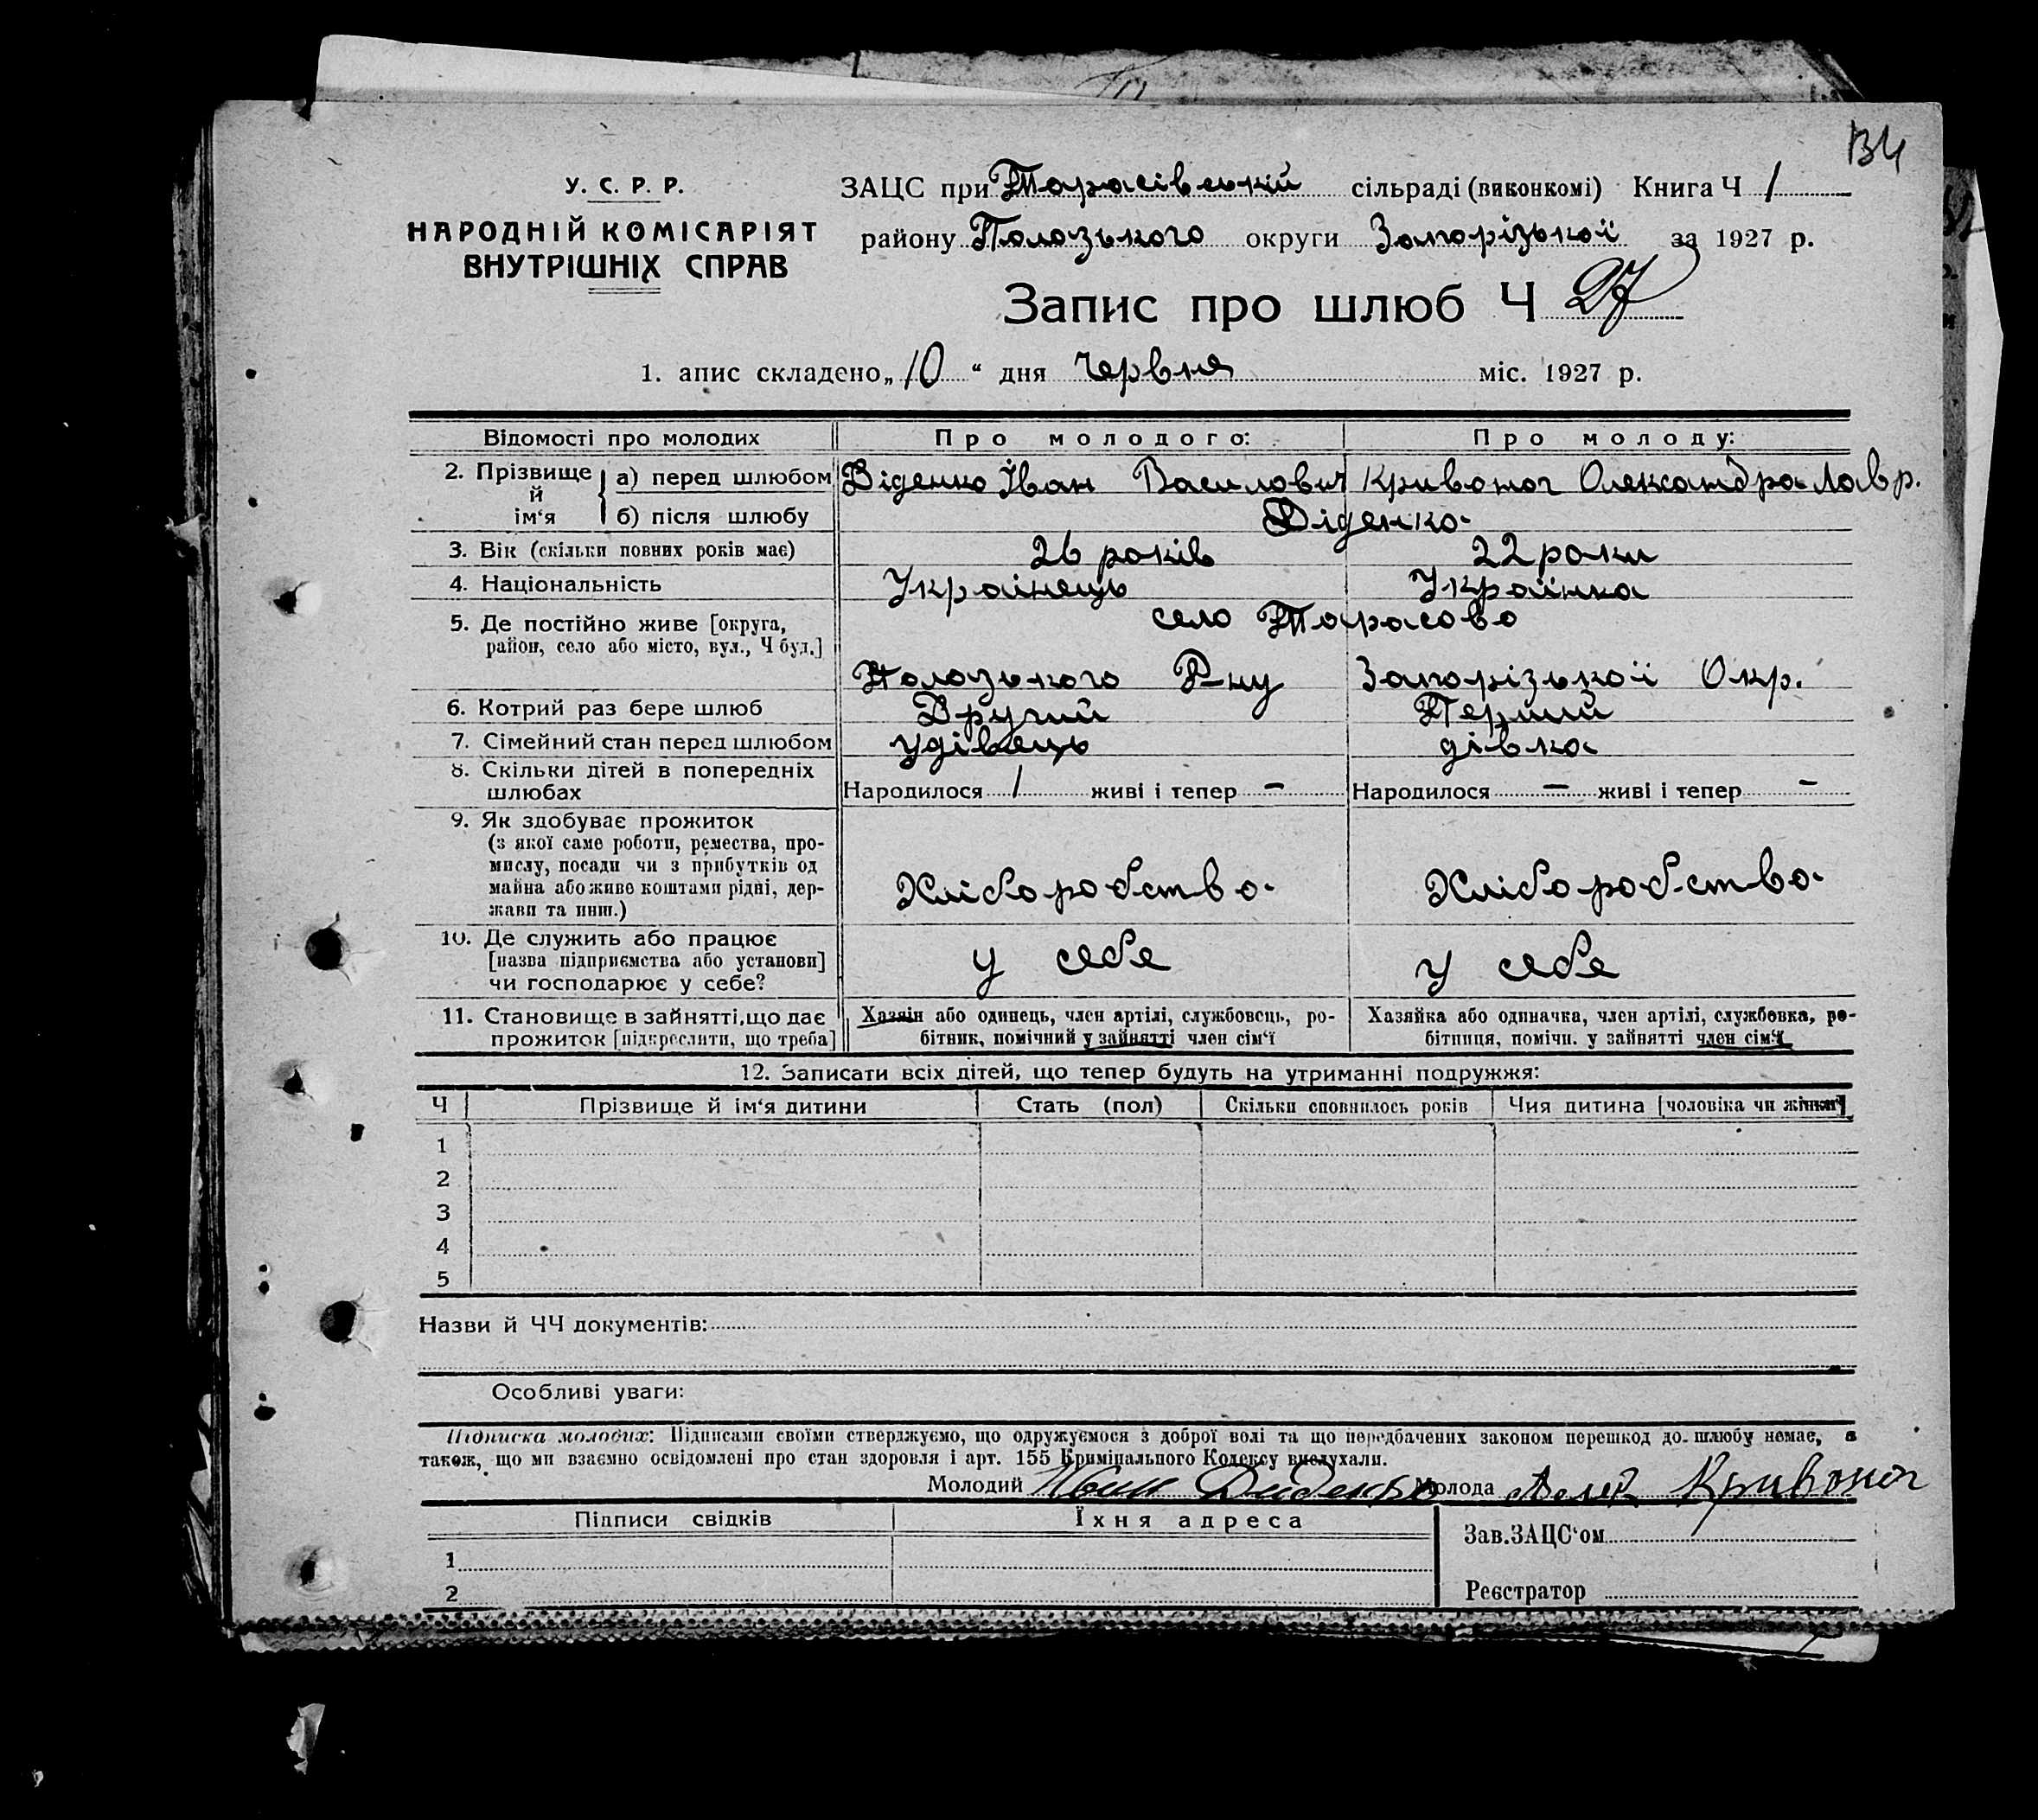 134
У. С. Р. Р.
НАРОДНІЙ КОМІСАРІЯТ
ВНУТРІШНІХ СПРАВ
ЗАЦС при Тарасівській сільраді (виконкомі) Книга Ч 1
району Пологзького округи Запорізької за 1927 р.
Запис про шлюб Ч 27
1. апис складено „ 10 “ дня Червня міс. 1927 р.
Відомості про молодих Про молодого: Про молоду:
2. Прізвище й ім‘я а) перед шлюбом Діденко Іван Василович Кривоног Олександра Лавр.
б) після шлюбу Діденко
3. Вік (скільки повних років має) 26 років 22 роки
4. Національність Українець Українка
5. Де постійно живе [округа, район, село або місто, вул., Ч буд.] село Тарасово
Полозького Р-ну Запорізької Окр.
6. Котрий раз бере шлюб Другий Перший
7. Сімейний стан перед шлюбом удівець дівка
8. Скільки дітей в попередніх шлюбах Народилося 1 живі і тепер — Народилося — живі і тепер —
9. Як здобуває прожиток
(з якої саме роботи, ремества, про-
мислу, посади чи з прибутків од
майна або живе коштами рідні, дер-
жави та инш.) Хліборобство Хліборобство
10. Де служить або працює
[назва підприємства або установи]
чи господарює у себе? у себе у себе
11. Становище в зайнятті, що дає
прожиток [підкреслити, що треба]
Хазяїн або одинець, член артілі, службовець, ро-
бітник, помічний у зайнятті член сім‘ї
Хазяйка або одиначка, член артілі, службовка, ро-
бітниця, помічн. у зайнятті член сім‘ї
12. Записати всіх дітей, що тепер будуть на утриманні подружжя:
Ч Прізвище й ім‘я дитини Стать (пол) Скільки сповнилось років Чия дитина [чоловіка чи жінки]
1
2
3
4
5
Назви й ЧЧ документів:
Особливі уваги:
Підписка молодих: Підписами своїми стверджуємо, що одружуємося з доброї волі та що передбачених законом перешкод до шлюбу немає, а
також, що ми взаємно освідомлені про стан здоровля і арт. 155 Кримінального Кодексу вислухали.
Молодий Иван Диденко Молода Кривоног
Підписи свідків Їхня адреса
1
2
Зав.ЗАЦС‘ом
Реєстратор